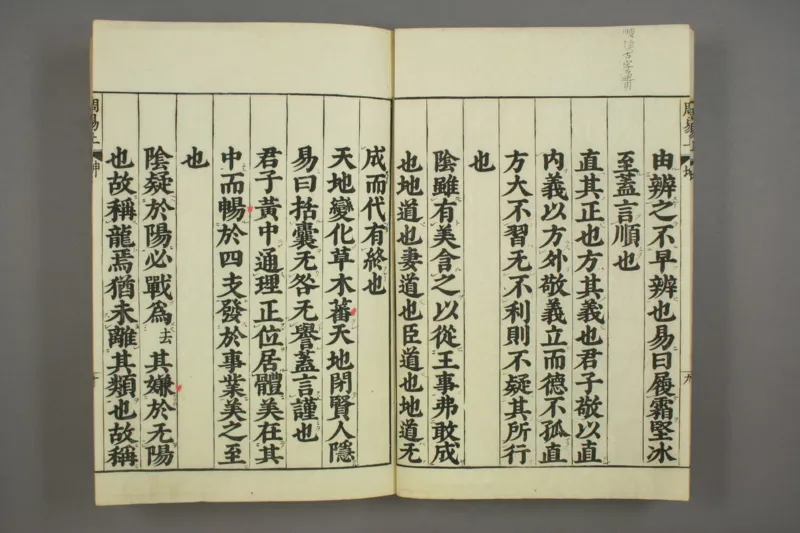 由辨之不早辨也易曰履霜堅冰
至蓋言順也
直其正也方其義也君子敬以直
內義以方外敬義立而德不孤直
方大不習无不利則不疑其所行
也
陰雖有美含之以從王事弗敢成
也地道也妻道也臣道也地道无
成而代有終也
天地變化草木蕃天地閉賢人隱
易曰括囊无咎无譽蓋言謹也
君子黃中通理正位居體美在其
中而暢於四支發於事業美之至
也
陰疑於陽必戰為去其嫌於无陽
也故稱龍焉猶未離其類也故稱
周易上
坤
十